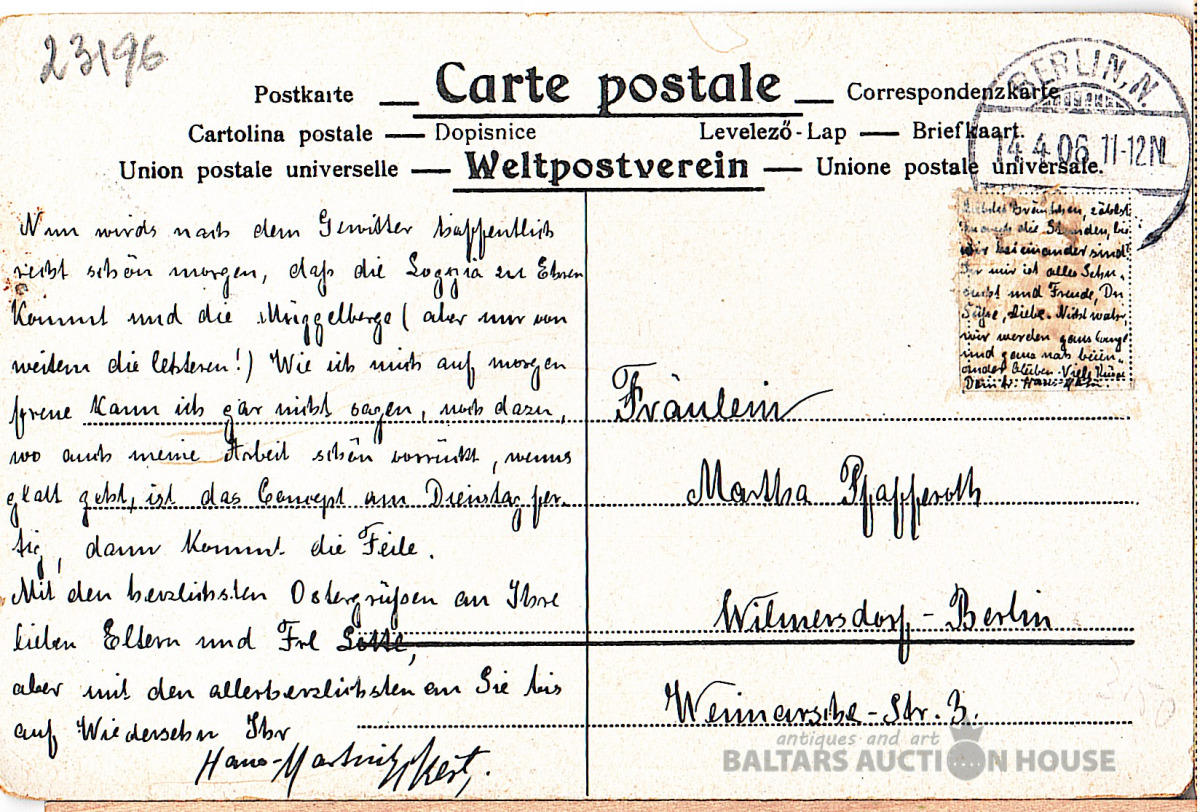 23196
Postkarte — Carte postale — Correspondenzkarte
Cartolina postale — Dopisnice Levelező-Lap — Briefkaart.
Union postale universelle — Weltpostverein — Unione postale universale.
BERLIN, N.
14.4.06. 11-12N
Nun wirds nach dem Gewitter hoffentlich
recht schön morgen, daß die Loggia zu Ehren
kommt und die Müggelberge (aber nur von
weitem die letzteren!) Wie ich mich auf morgen
freue kann ich gar nicht sagen, noch dazu,
wo auch meine Arbeit schön vorrückt, wenns
glatt geht, ist das Concept am Dienstag fer-
tig, dann kommt die Feile.
Mit den herzlichsten Ostergrüßen an Ihre
lieben Eltern und Frl Lotte,
aber mit den allerherzlichsten an Sie bis
auf Wiedersehn Ihr
Hans-Martin
Bräutchen, zählst
auch die Stunden, bis
wir beieinander sind?
In mir ist alles Sehn-
sucht und Freude, Du
Süße, Liebe. Nicht wahr
wir werden ganz lange
und ganz nah beiein-
ander bleiben. Viele Küsse
Dein
Fräulein
Martha Pfafferoth
Wilmersdorf-Berlin
Weimarsche-Str. 3.
antiques and art
BALTARS AUCTION HOUSE